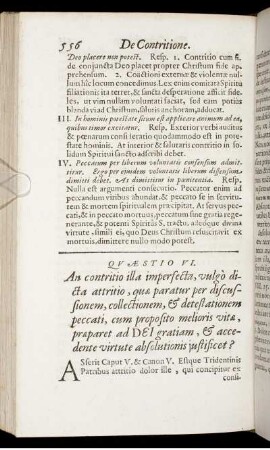 556 De Contritione.
Deo placere non potest. Resp. 1. Contritio cum fide
conjuncta Deo placet propter Christum fide apprehensum.
2. Coactioni externæ & violentæ nullum
hic locum concedimus. Lex enim comitata Spiritu
filiationis ita terret, & sancta desperatione afficit fideles,
ut vim nullam voluntati faciat, sed eam potius
blanda via ad Christum, salutis anchoram, adducat.
III. In hominis potestate situm est applicare animum ad ea,
quibus timor excitatur. Resp. Exterior verbi auditus
& pœnarum consideratio quodammodo est in potestate
hominis. At interior & salutaris contritio in solidum
Spiritui sancto adscribi debet.
IV. Peccatum per liberum voluntatis consensum admittitur.
Ergo per ejusdem voluntatis liberum dissensum
dimitti debet. At dimittitur in pœnitentia. Resp.
Nulla est argumenti consecutio. Peccator enim ad
peccandum viribus abundat, & peccato se in servitutem
& mortem spiritualem præcipitat. At servus peccati,
& in peccato mortuus, peccatum sine gratia regenerante,
& potenti Spiritus S. tractu, absque divina
virtute, simili ei, quo Deus Christum resuscitavit ex
mortuis, dimittere nullo modo potest.
QVÆSTIO VI.
An contritio illa imperfecta, vulgò dicta
attritio, quæ paratur per discussionem,
collectionem, & detestationem
peccati, cum proposito melioris vitæ,
præparet ad DEI gratiam, & accedente
virtute absolutionis justificet?
ASserit Caput V. & Canon V. Estque Tridentinis
Patribus attritio dolor ille, qui concipitur ex
consi-